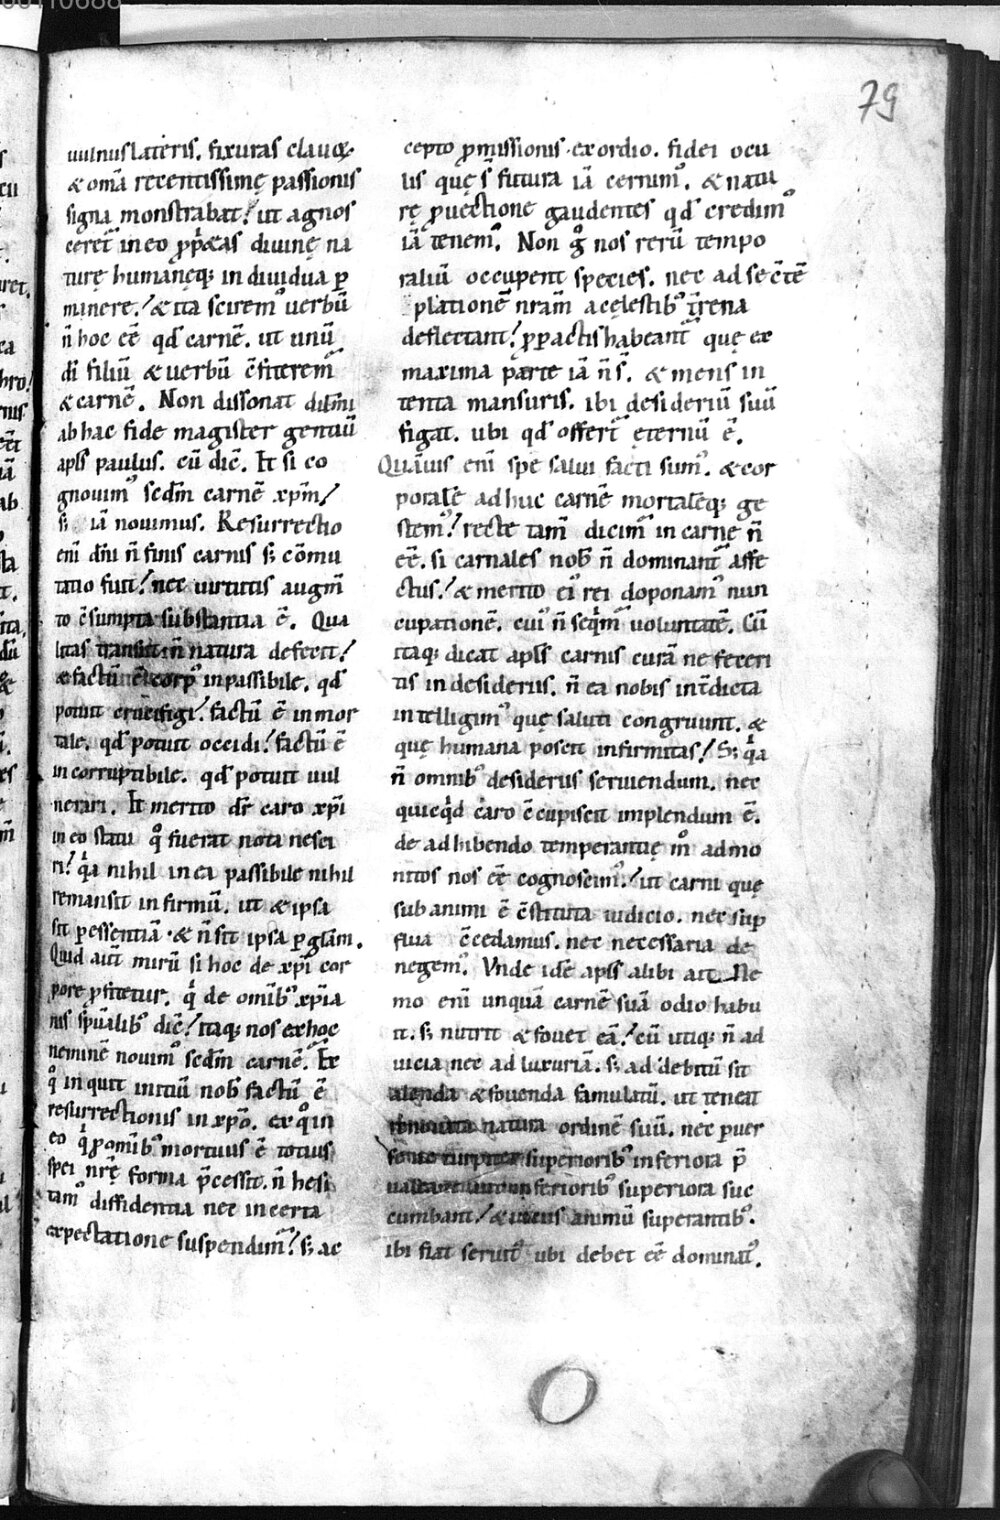 79
uulnus lateris. fixuras clauoꝝ.
& om̄ia recentissimę passionis
signa monstrabat! ut agnos
ceret̄ in eo ꝓp̄etas diuinę na
turę humanęq; in diuidua ꝑ
manere! & ita sciremꝰ uerbū
n̄ hoc eē qđ carnē. ut unū
dī filiū & uerbū c̄fiterem̄
& carnē. Non dissonat dil̄mi
ab hac fide magister gentiū
apl̄s paulus. cū dic̄. Et si co
gnouimꝰ secdm̄ carnē xp̄m!
s; iā nouimus. Resurrectio
enī dn̄i n̄ finis carnis s; cōmu
tatio fuit! nec uirtutis augm̄
to c̄sumpta substantia ē. Qua
litas transiit n̄ natura deferit!
& factū ē corpꝰ inpassibile. qđ
potuit crucifigi! factū ē in mor
tale. qđ potuit occidi! factū ē
incorruptibile. qđ potuit uul
nerari. Et merito dr̄ caro xp̄i
in eo statu qͦ fuerat nota nesci
ri! qͣa nihil in ea passibile nihil
remansit in firmū. ut & ipsa
sit ꝑ essentiā. & n̄ sit ipsa ꝑ gl̄am.
Quid aut̄ mirū si hoc de xp̄i cor
pore ꝓfitetur. qͥ de omīb; xp̄ia
nis sp̄ualibꝰ dic̄! Itaq; nos ex hoc
neminē nouimꝰ secdm̄ carnē. Ex
qͦ in quit initiū nob̄ factū ē
resurrectionis in xp̄o. ex qͦ in
eo qͥ ꝓ omībꝰ mortuus ē totius
spei nr̄ę forma p̄cessit. n̄ hesi
tamꝰ diffidentia nec incerta
expectatione suspendim̄! s; ac
cepto ꝓmissionis exordio. fidei ocu
lis quę s̄ futura iā cernimꝰ. & natu
rę ꝓuectione gaudentes qđ credimꝰ
iā tenemꝰ. Non g̊ nos rerū tempo
raliū occupent species. nec ad se c̄tē
plationē nr̄am a celestibꝰ t̄rena
deflectant! ꝓ ꝑactis habeant̄ quę ex
maxima parte iā n̄ s̄. & mens in
tenta mansuris. ibi desideriū suū
figat. ubi qđ offert̄ ęternū ē.
Quāuis enī spe salui facti sumꝰ. & cor
porale adhuc carnē mortaleq; ge
stemꝰ! recte tam̄ dicim̄ in carne n̄
eē. si carnales nob̄ n̄ dominant̄ affe
ctus! & merito eiꝰ rei doponamꝰ nun
cupationē. cuiꝰ n̄ seqͥm̄ uoluntatē. Cū
itaq; dicat apl̄s carnis curā ne feceri
tis in desideriis. n̄ ea nobis int̄dicta
intelligimꝰ quę saluti congruunt. &
quę humana poscit infirmitas! S; qͣa
n̄ omnibꝰ desideriis seruiendum. nec
quicqͥd caro c̄cupiscit implendum ē.
de adhibendo temperantię mͦ admo
nitos nos eē cognoscimꝰ! ut carni quę
sub animi ē c̄stituta iudicio. nec sup̄
flua c̄cedamus. nec necessaria de
negemꝰ. Vnde idē apl̄s alibi ait. Ne
mo enī unquā carnē suā odio habu
it. s; nutrit & fouet eā! cū utiq; n̄ ad
uicia nec ad luxuriā. s; ad debitū sit
alenda & fouenda famulatū. ut teneat
renouata natura ordinē suū. nec ꝑuer
turpiter superioribꝰ inferiora p̄
inferioribꝰ superiora suc
cumbant! & uiciis animū superantibꝰ.
ibi fiat seruitꝰ ubi debet eē dominatꝰ.